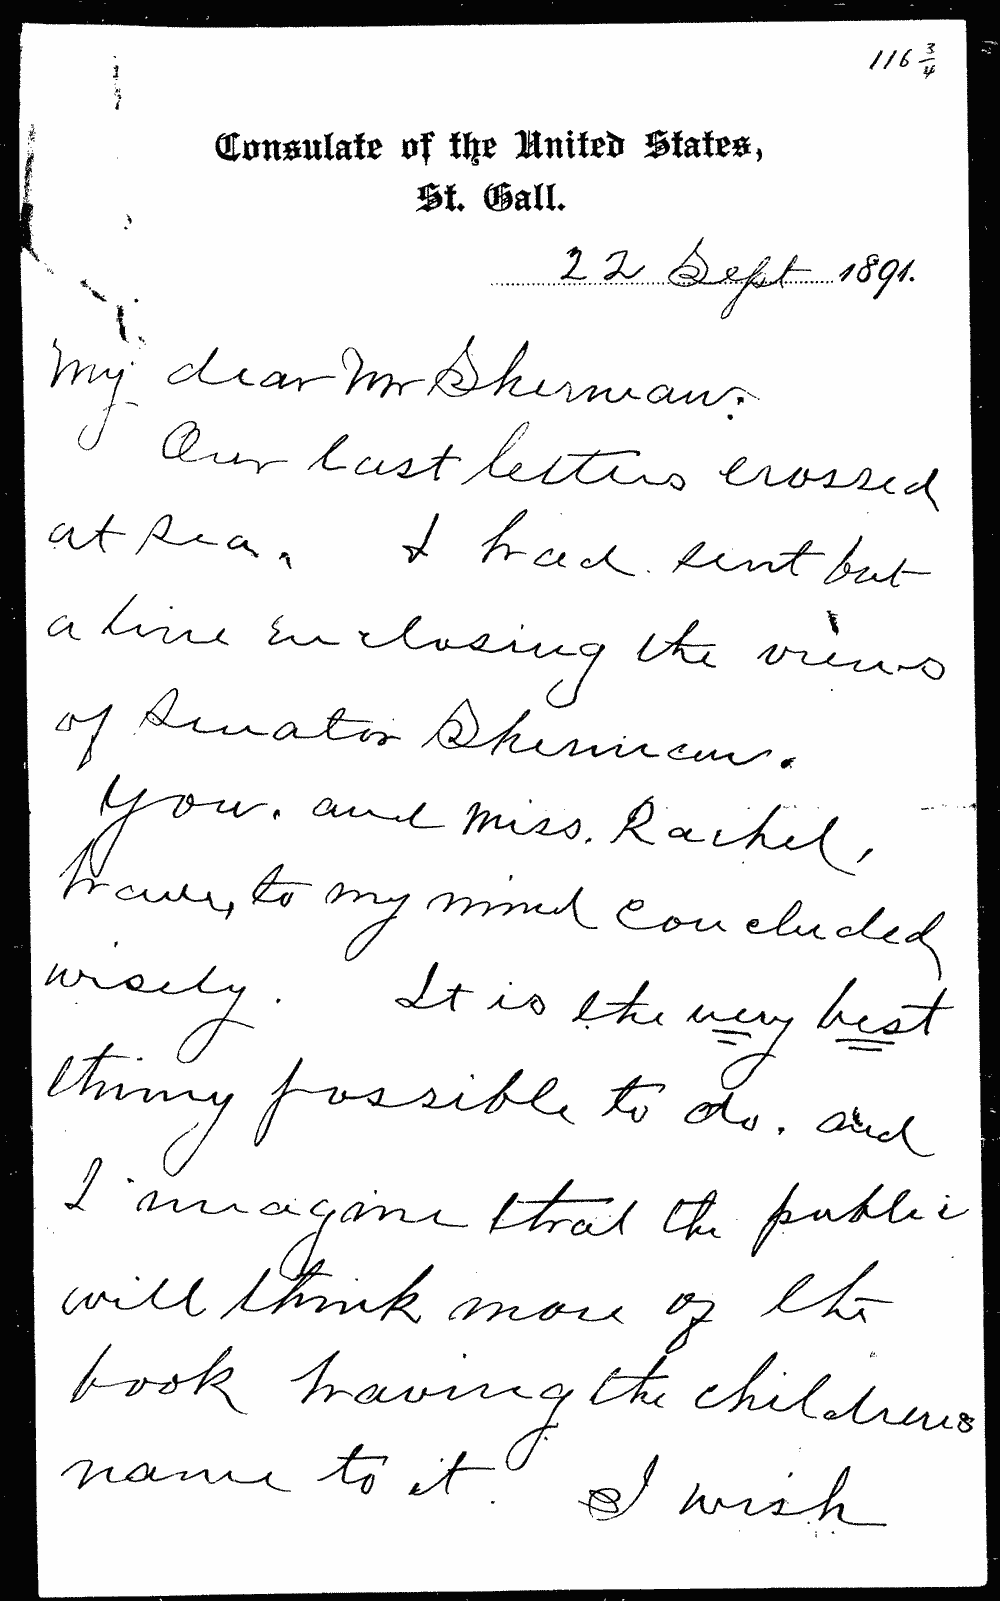 116 3/4
Consulate of the United States,
St. Gall.
22 Sept 1891.
My dear Mr Sherman:
Our last letters crossed
at sea. I had sent but
a line enclosing the views
of Senator Sherman.
You. and Miss. Rachel,
have, to my mind concluded
wisely. It is the very best
thing possible to do. and
I imagine that the public
will think more of the
book having the childrens
name to it. I wish